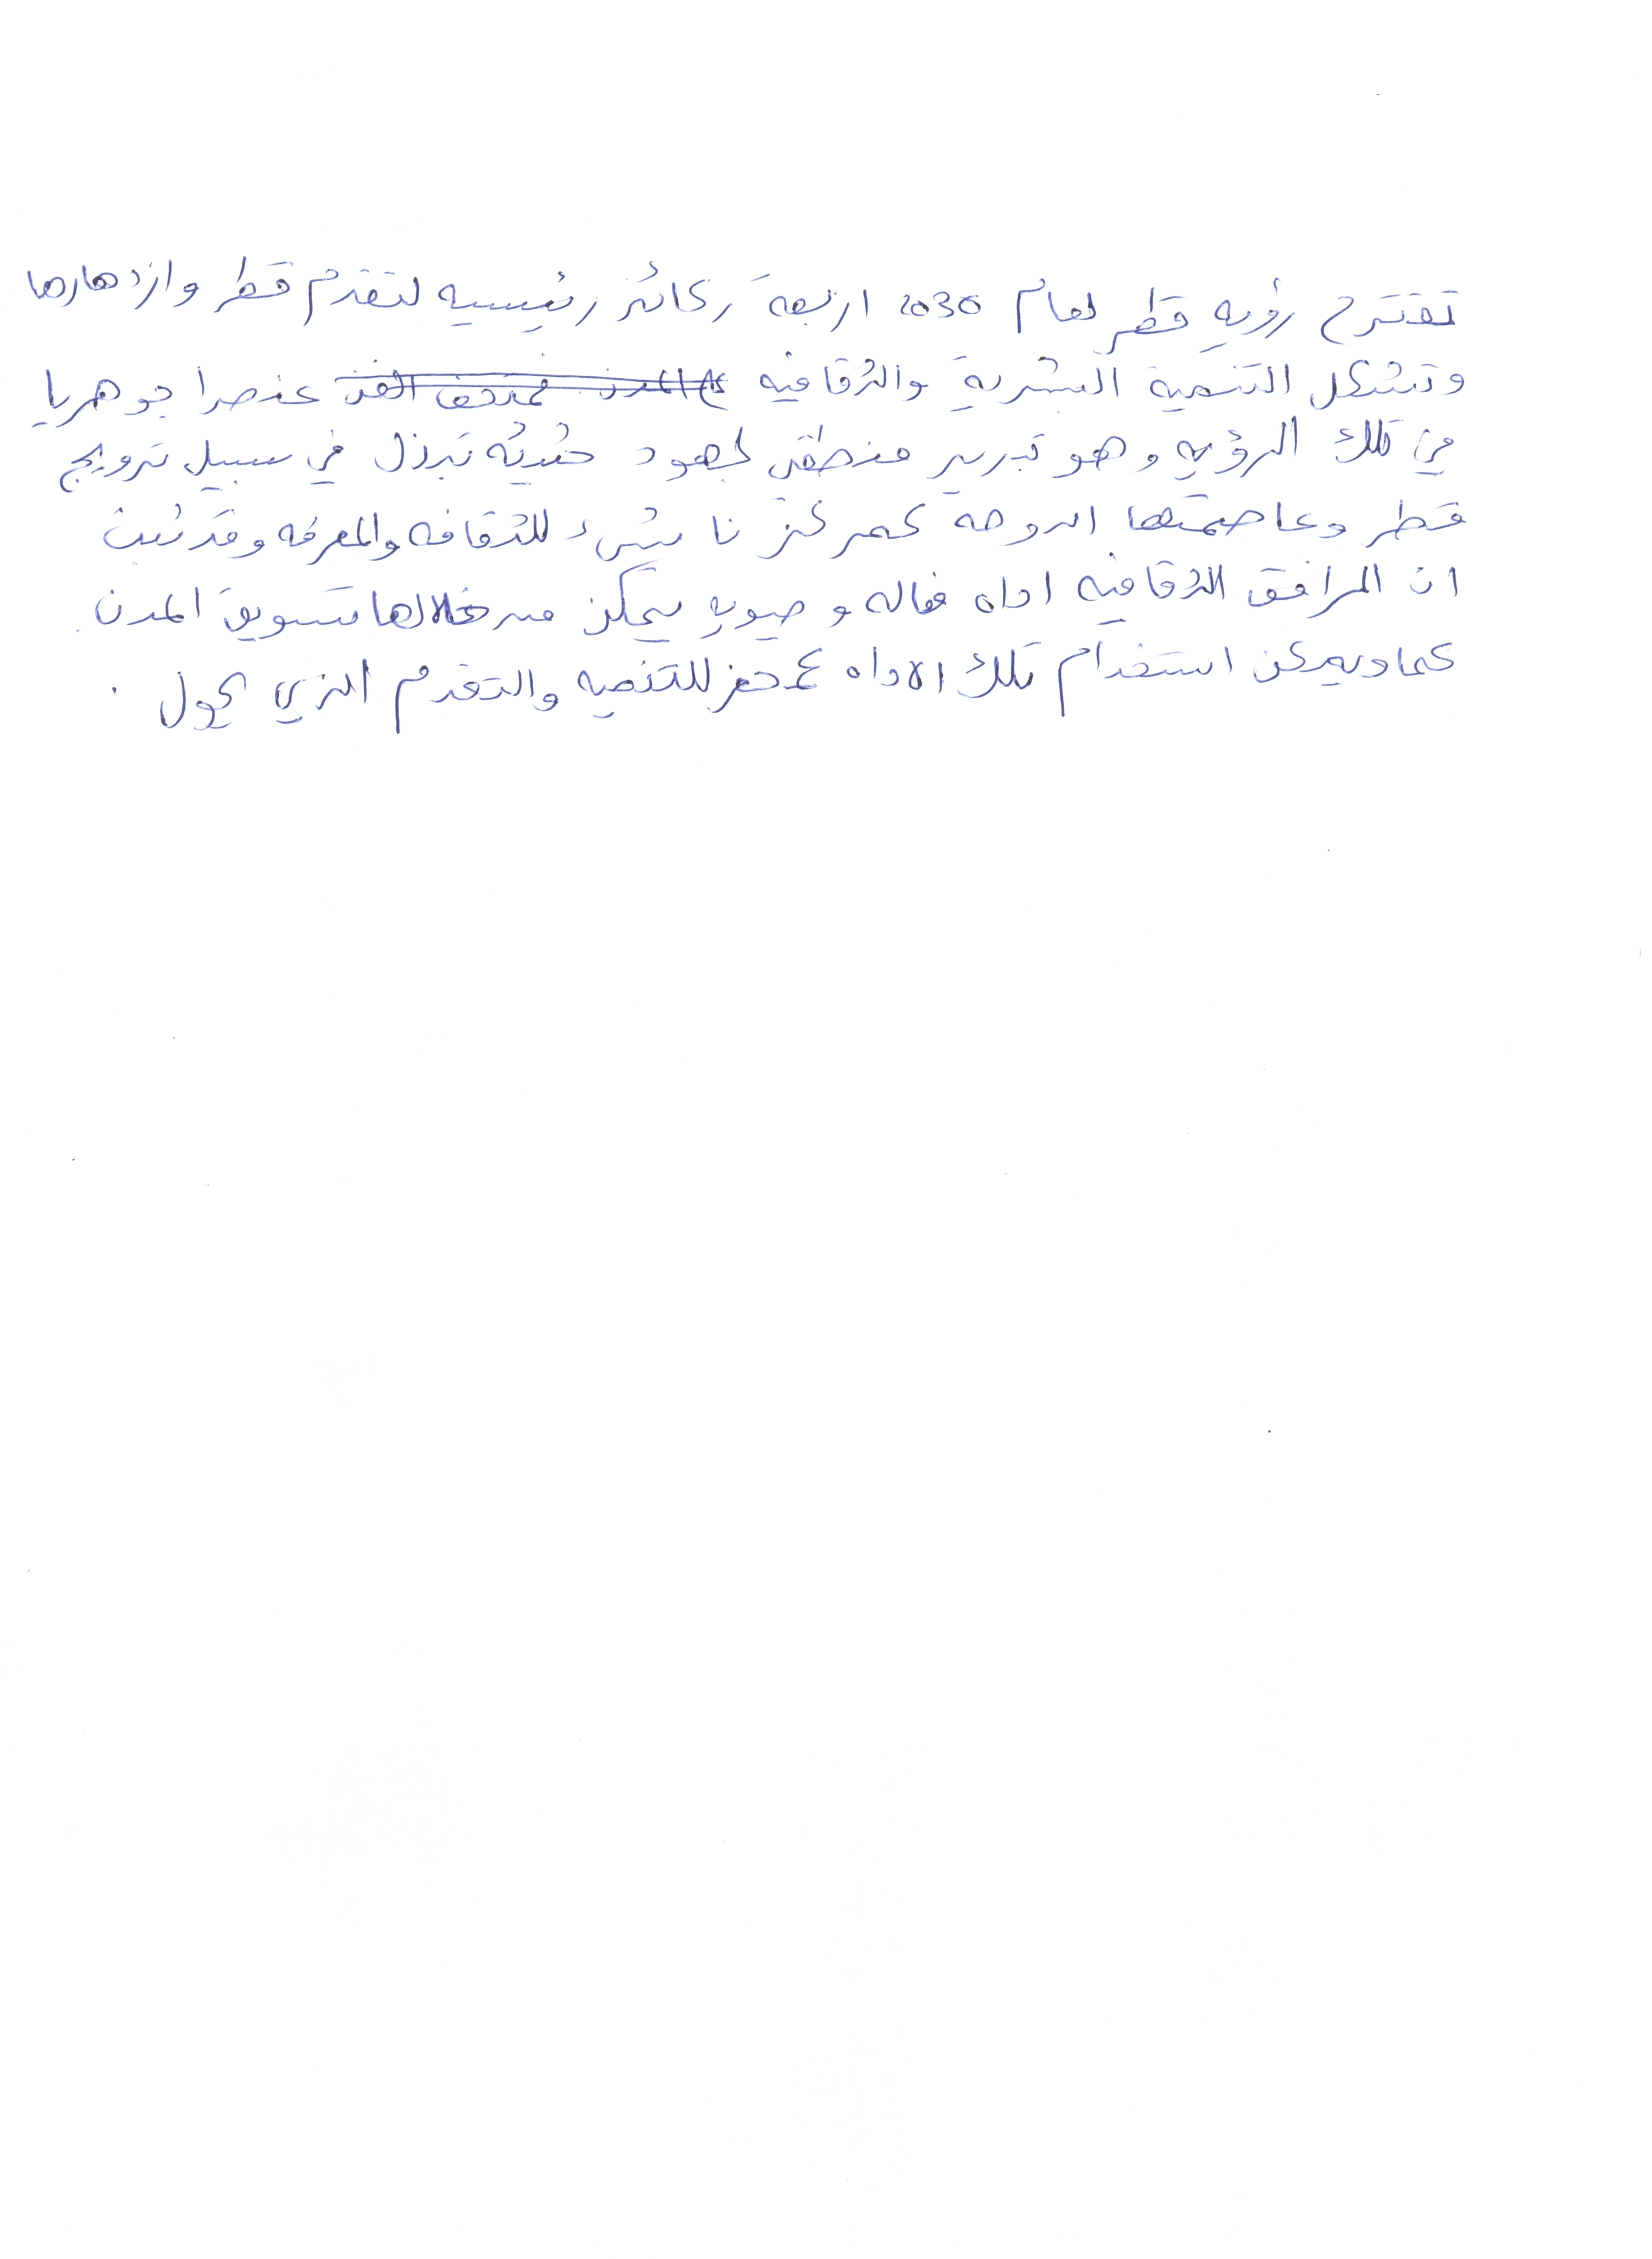 تقترح رؤيه قطر لعام 2030 اربعة ركائز رئيسيه لتقدم قطر وازدهارها
وتشكل التنمية البشرية والثقافيه عنصرا جوهريا
في تلك الرؤيه وهو تبرير منطقي لجهود حثيثه تبذل في سبيل ترويج
قطر وعاصمتها الدوحه كمركز ناشيء للثقافه والمعرفه وقد ثبت
ان المرافق الثقافيه اداه فعاله وحيويه يمكن من خلالها تسويق المدن
كما ويمكن استخدام تلك الاداه كمحفز للتنميه والتقدم الذي يحول .